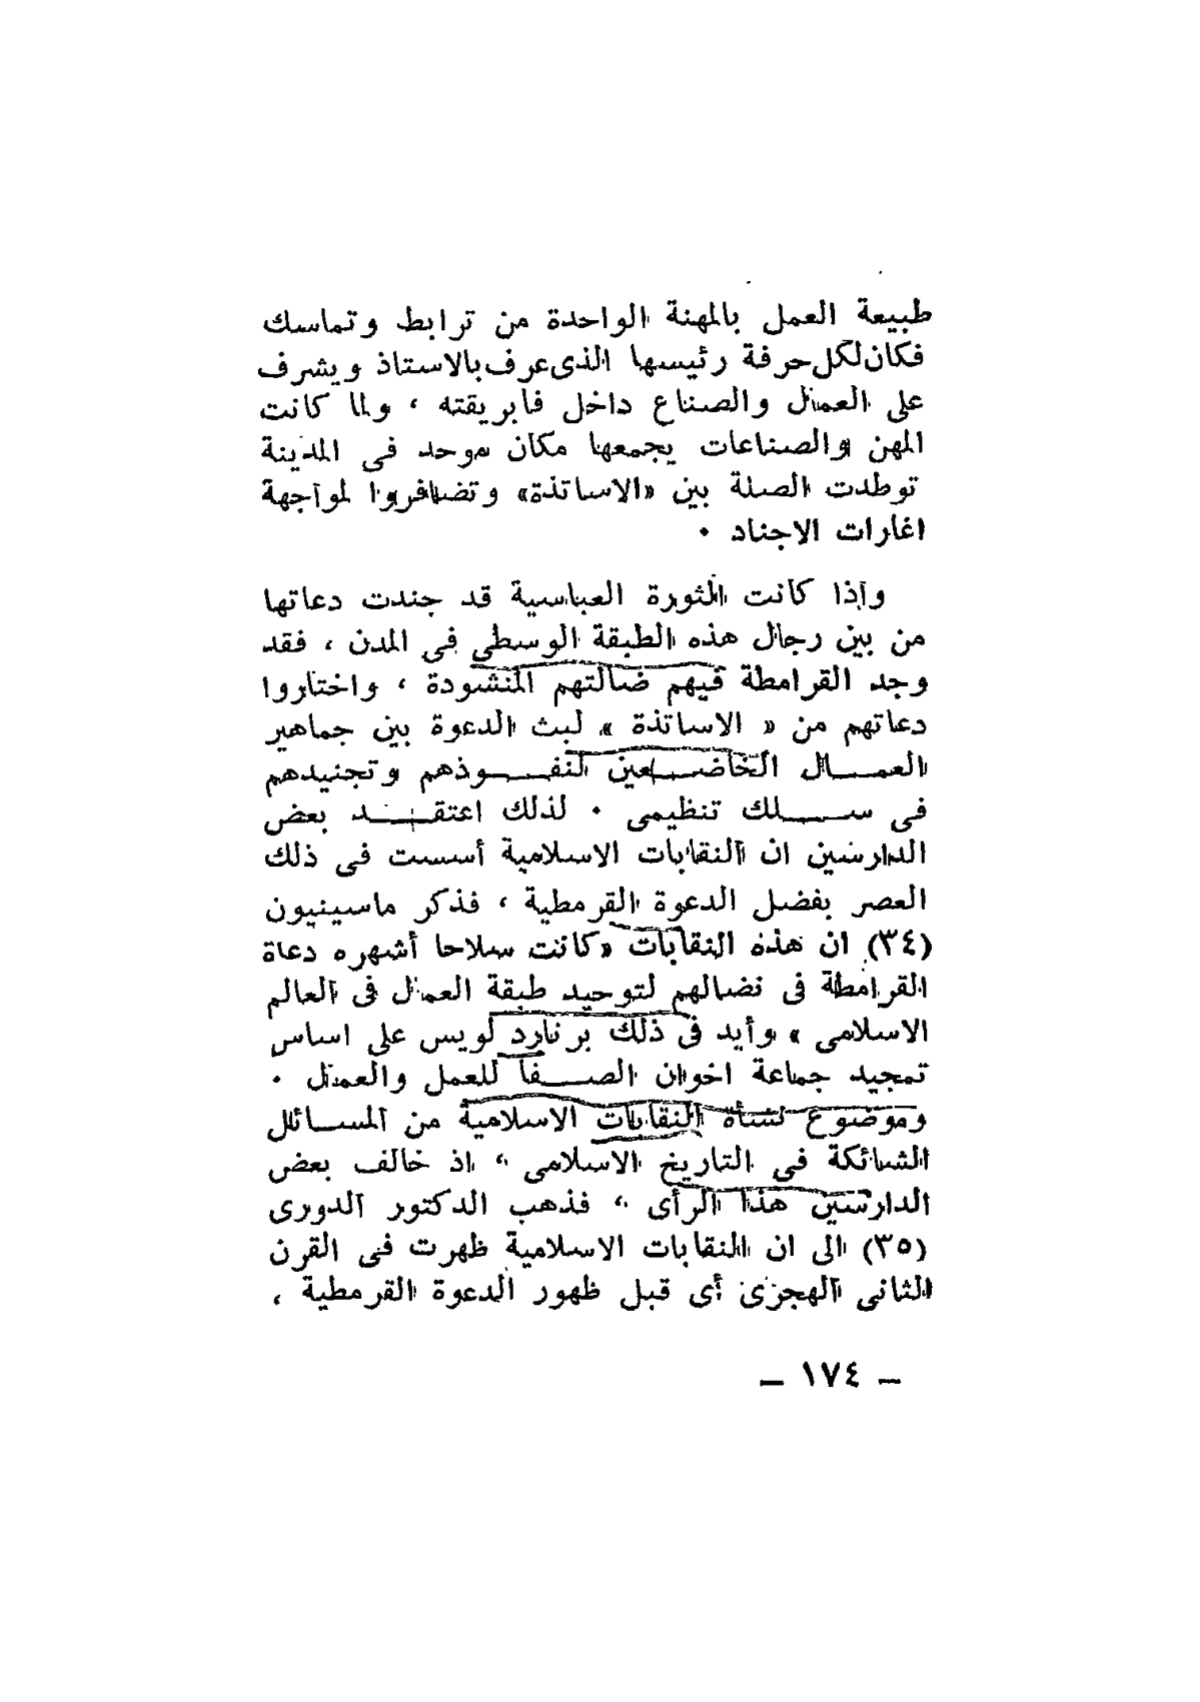 طبيعة العمل بالمهنة الواحدة من ترابط وتماسك
فكان لكل حرفة رئيسها الذى عرف بالاستاذ ويشرف
على العمال والصناع داخل فابريقته ، ولما كانت
المهن والصناعات يجمعها مكان موحد فى المدينة
توطدت الصلة بين «الاساتذة» وتضافروا لمواجهة
اغارات الاجناد ٠
واذا كانت الثورة العباسية قد جندت دعاتها
من بين رجال هذه الطبقة الوسطى فى المدن ، فقد
وجد القرامطة فيهم ضالتهم المنشودة ، واختاروا
دعاتهم من « الاساتذة » لبث الدعوة بين جماهير
العمـــال الخاضـــعين لنفـــوذهم وتجنيدهم
فى ســـلك تنظيمى ٠ لذلك اعتقـــد بعض
الدارسين ان النقابات الاسلامية أسست فى ذلك
العصر بفضل الدعوة القرمطية ، فذكر ماسينيون
(٣٤) ان هذه النقابات «كانت سلاحا أشهره دعاة
القرامطة فى نضالهم لتوحيد طبقة العمال فى العالم
الاسلامى » وأيد فى ذلك برنارد لويس على اساس
تمجيد جماعة اخوان الصـــفا للعمل والعمال ٠
وموضوع نشأة النقابات الاسلامية من المســائل
الشائكة فى التاريخ الاسلامى ، اذ خالف بعض
الدارسين هذا الرأى ، فذهب الدكتور الدورى
(٣٥) الى ان النقابات الاسلامية ظهرت فى القرن
الثانى الهجرى أى قبل ظهور الدعوة القرمطية ،
— ١٧٤ —